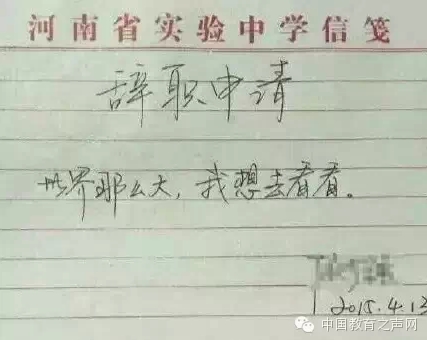 河南省实验中学信笺
辞职申请
世界那么大，我想去看看。
2015.4.13
中国教育之声网